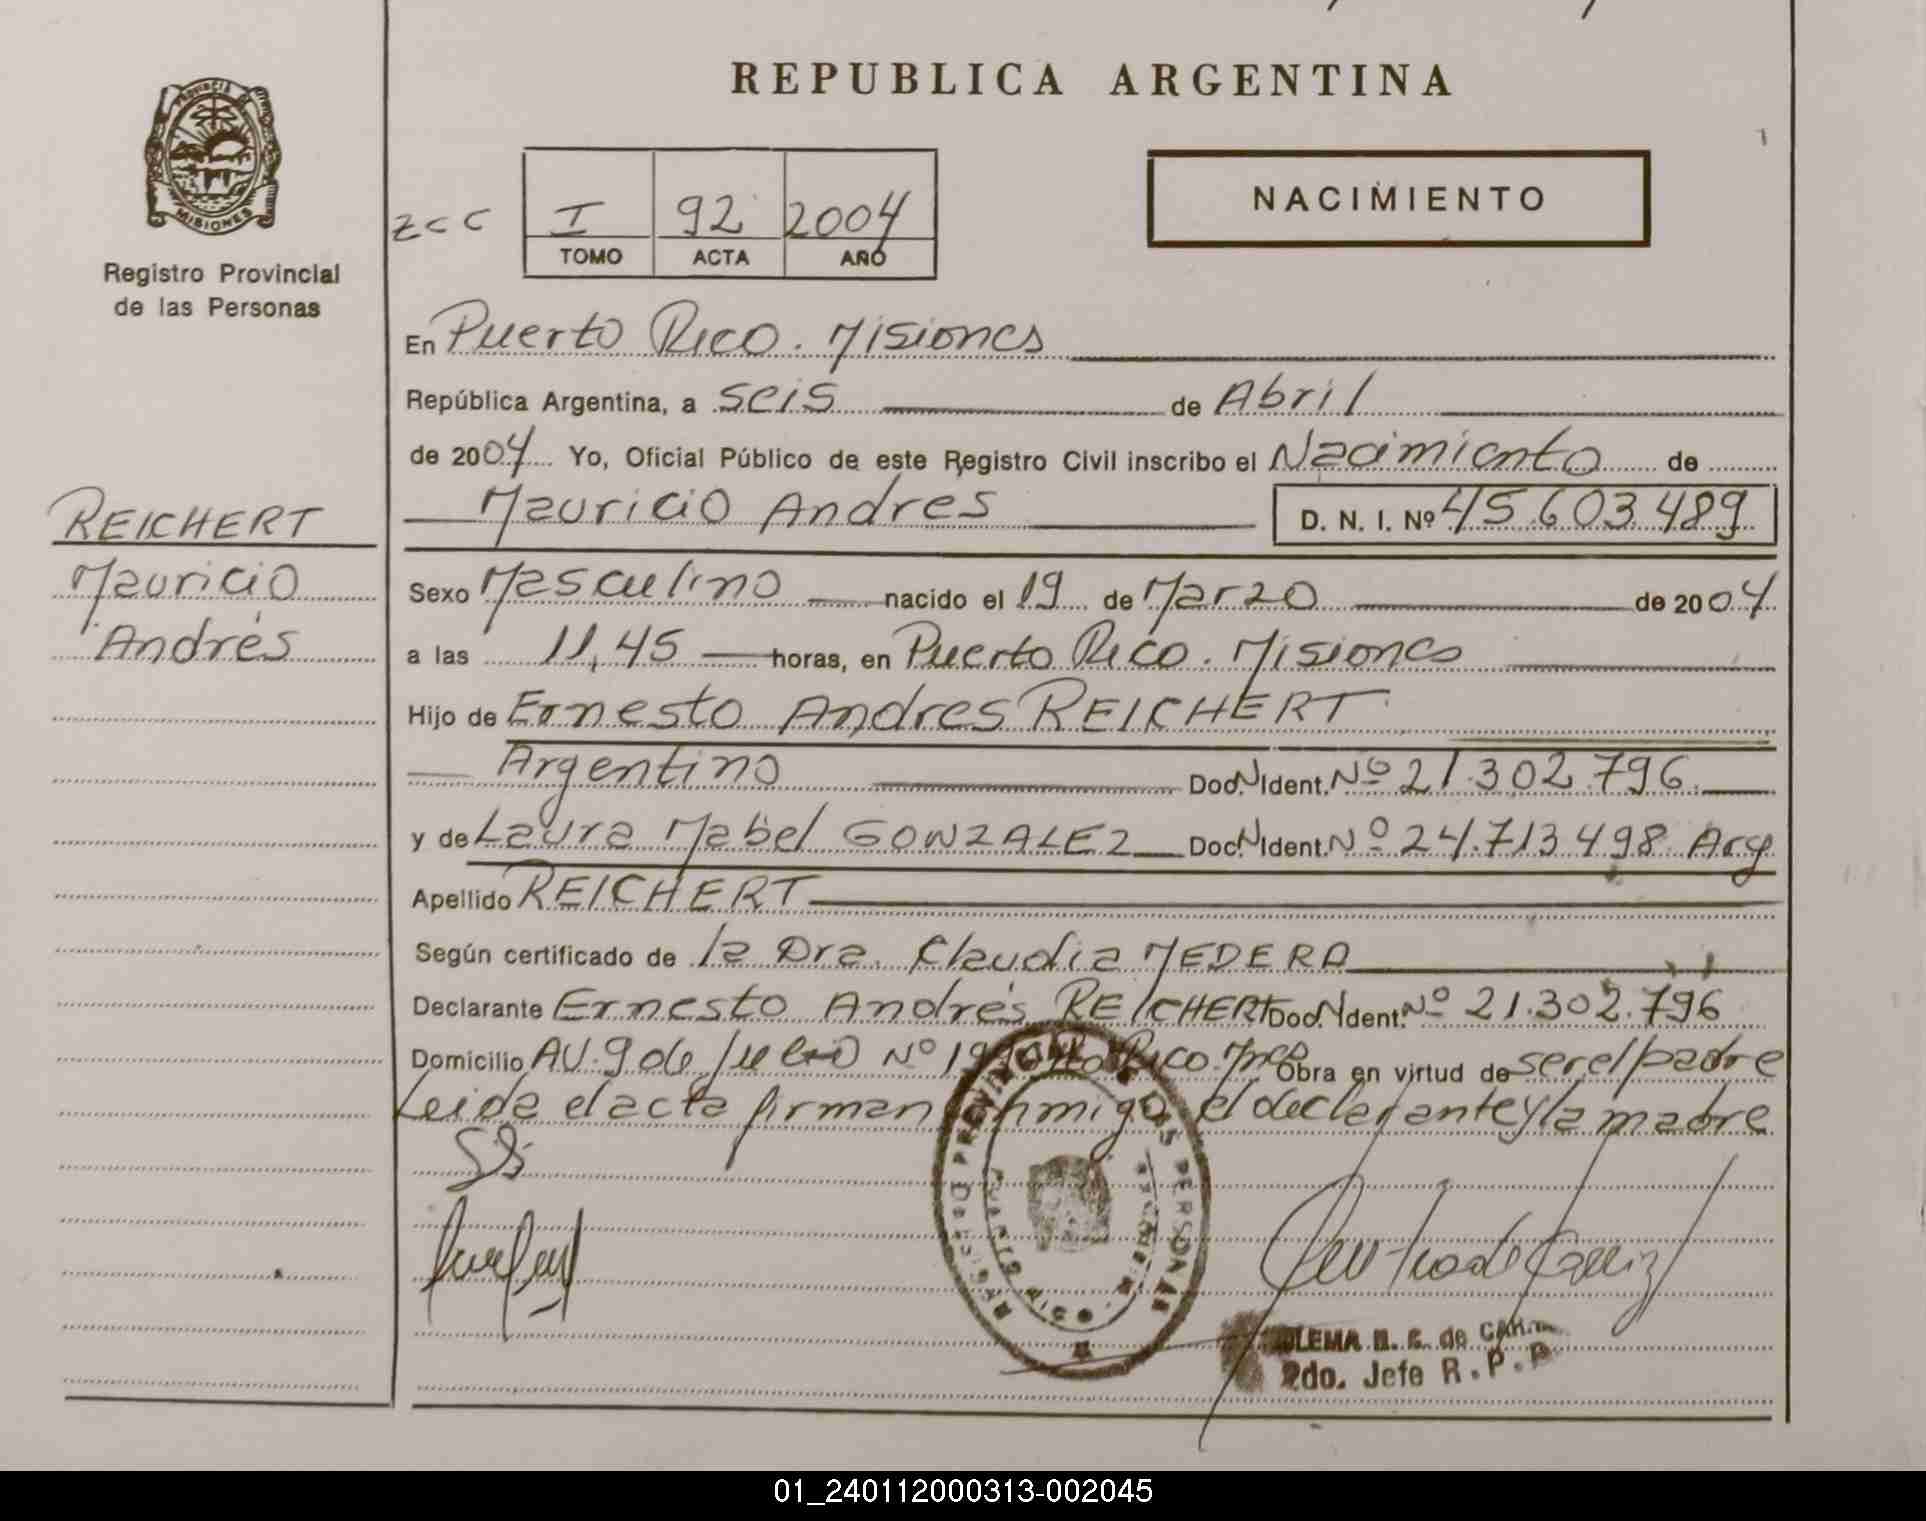 REPUBLICA ARGENTINA
PROVINCIA DE
MISIONES
Registro Provincial
de las Personas
NACIMIENTO
zcc
I 92 2004
TOMO ACTA AÑO
En Puerto Rico. Misiones
República Argentina, a seis de Abril
de 2004 Yo, Oficial Público de este Registro Civil inscribo el Nacimiento de
Mauricio Andres D. N. I. Nº 45.603.489
REICHERT
Mauricio
Andrés
Sexo Masculino nacido el 19 de Marzo de 2004
a las 11,45 horas, en Puerto Rico. Misiones
Hijo de Ernesto Andres REICHERT
Argentino Doc. N Ident. Nº 21.302.796
y de Laura Mabel GONZALEZ Doc. N Ident. Nº 24.713.498 Arg
Apellido REICHERT
Según certificado de la Dra. Claudia MEDERA
Declarante Ernesto Andrés REICHERT Doc. N Ident. Nº 21.302.796
Domicilio AV. 9 de Julio Nº Rico. Mnes Obra en virtud de ser el padre
Leida el acta firman conmigo el declarante y la madre
REGISTRO PROVINCIAL DE LAS PERSONAS
PUERTO RICO
de
2do. Jefe R.P.P.
01_240112000313-002045